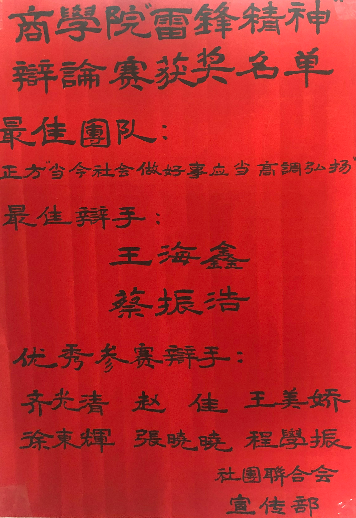 商學院"雷鋒精神"
辯論赛获奖名单
最佳團队：
正方"当今社会做好事应当高調弘扬"
最佳辯手：
王海鑫
蔡振浩
优秀参赛辯手：
齐兆清 赵佳 王美娇
徐東輝 張曉曉 程學振
社團聯合会
宣传部